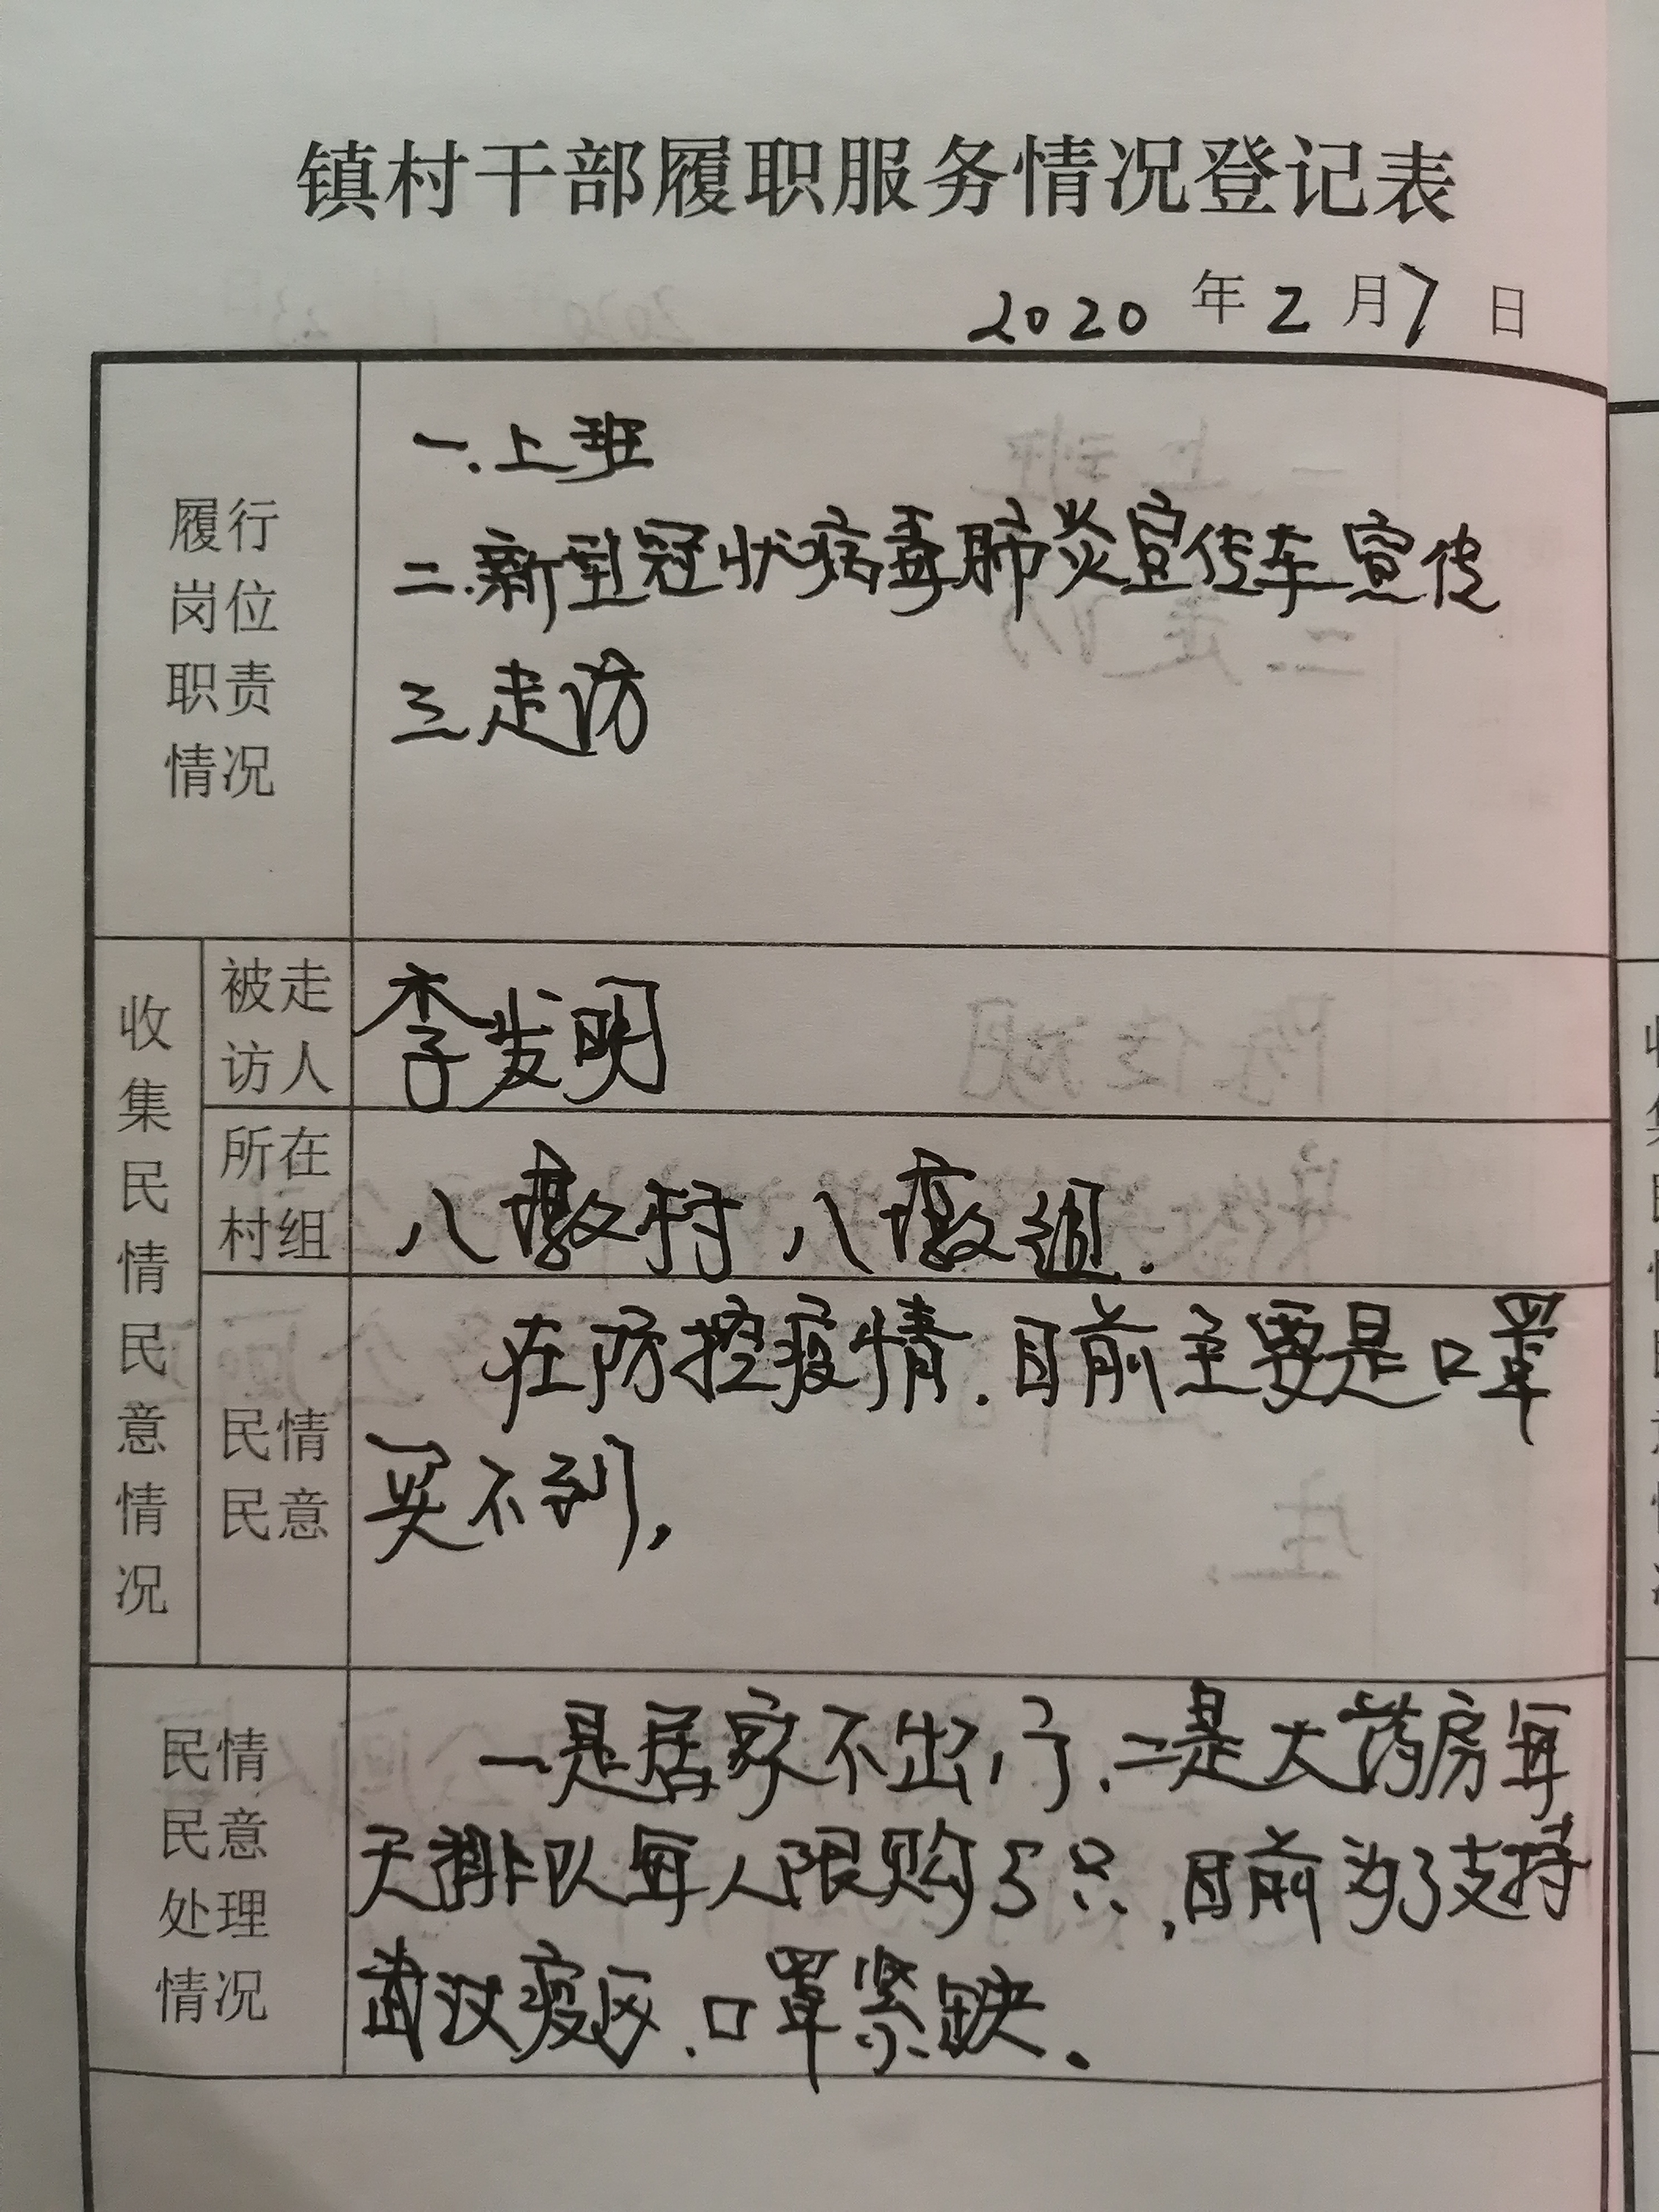 镇村干部履职服务情况登记表
2020年2月7日
履行
岗位
职责
情况
一.上班
二.新型冠状病毒肺炎宣传车宣传
三.走访
收集民情民意情况
被走
访人
李发明
所在
村组
八墩村八墩组.
民情
民意
在防控疫情.目前主要是口罩
买不到,
民情
民意
处理
情况
一是居家不出门.二是大药房每
天排队每人限购5只,目前为了支持
武汉疫区.口罩紧缺.